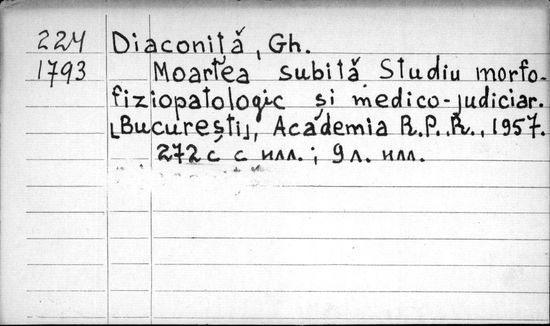 224 Diaconiță, Gh.
1793 Moartea subită. Studiu morfo-
fiziopatologic și medico-judiciar.
[București], Academia R.P.R., 1957.
272 с с илл.; 9 л. илл.